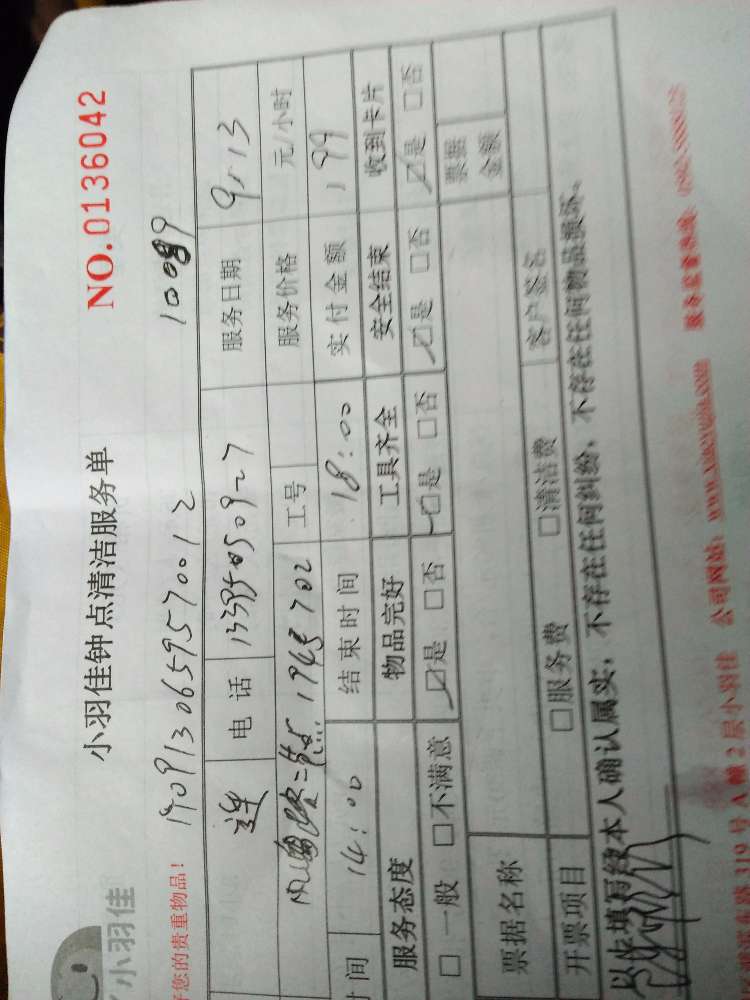 小羽佳
小羽佳钟点清洁服务单
NO.0136042
您的贵重物品！
1709130659570012
10089
连 电话 13395050927 服务日期 9.13
1943 702 工号 服务价格 元/小时
时间 14:00 结束时间 18:00 实付金额 199
服务态度 物品完好 工具齐全 安全结束 收到卡片
□一般 □不满意 ☑是 □否 ☑是 □否 ☑是 □否 ☑是 □否
票据名称 票据金额
开票项目 □服务费 □清洁费 客户签名
以上填写经本人确认属实，不存在任何纠纷，不存在任何物品损坏。
东路 319 号 A 幢 2 层小羽佳 公司网站：www.xiaoyujia.com 服务监督热线：